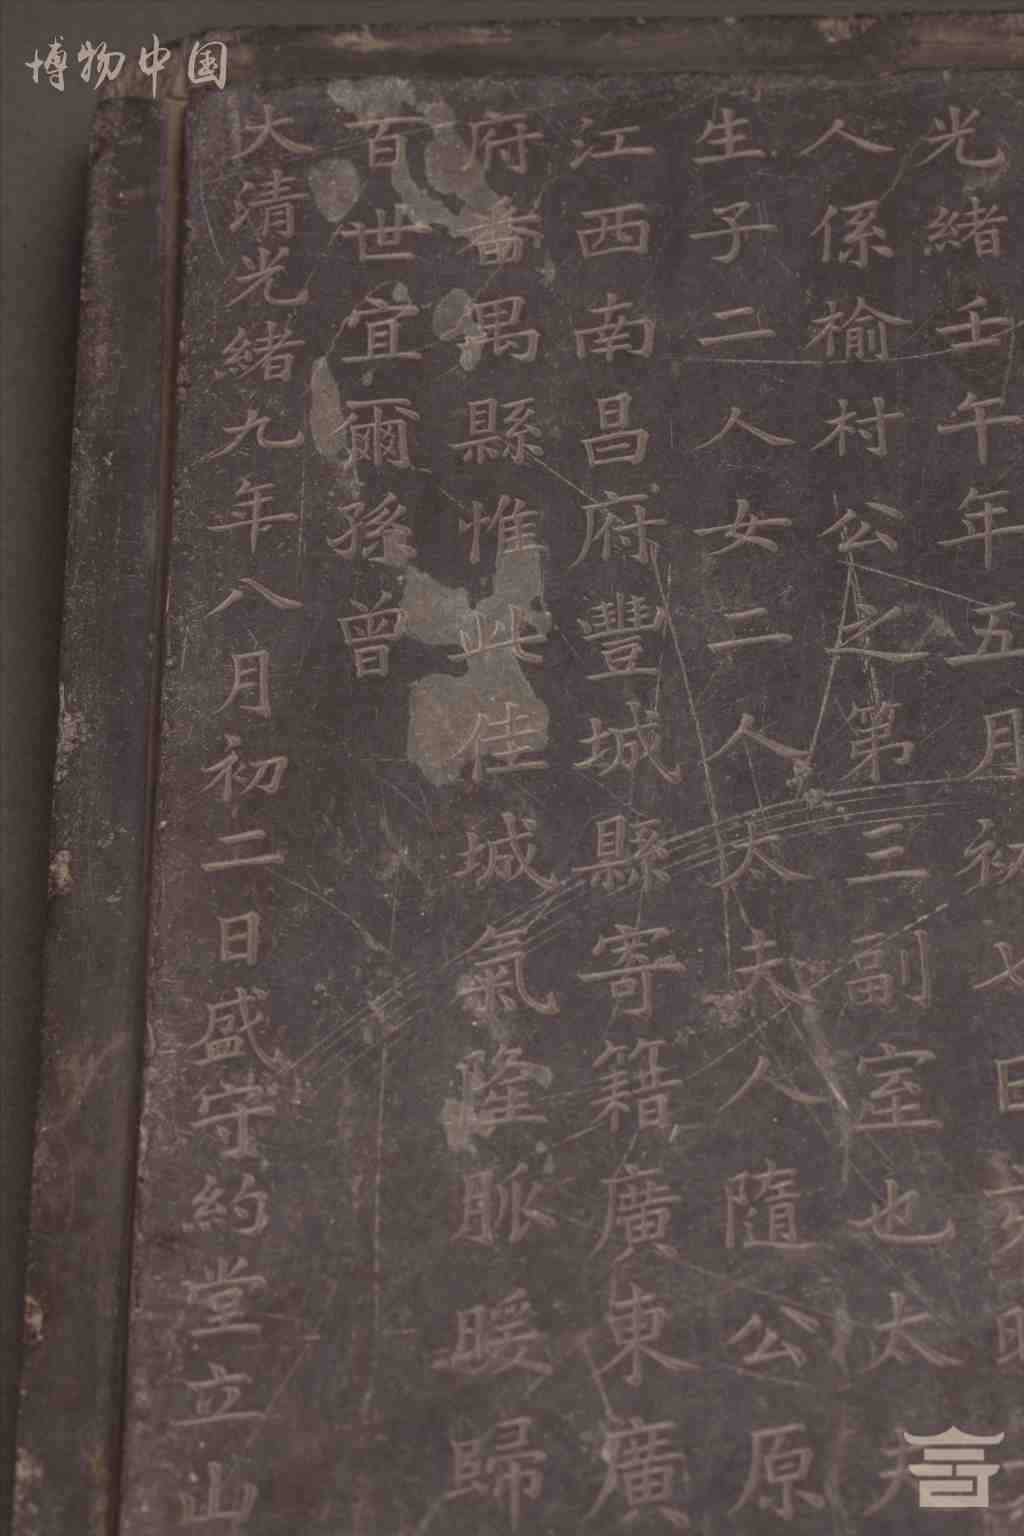 博物中国
光緒壬午年五月初七日
人係榆村公之第三副室也太夫
生子二人女二人太夫人隨公原
江西南昌府豐城縣寄籍廣東廣
府番禺縣惟此佳城氣隆脈暖歸
百世宜爾孫曾
大清光緒九年八月初二日盛守約堂立山